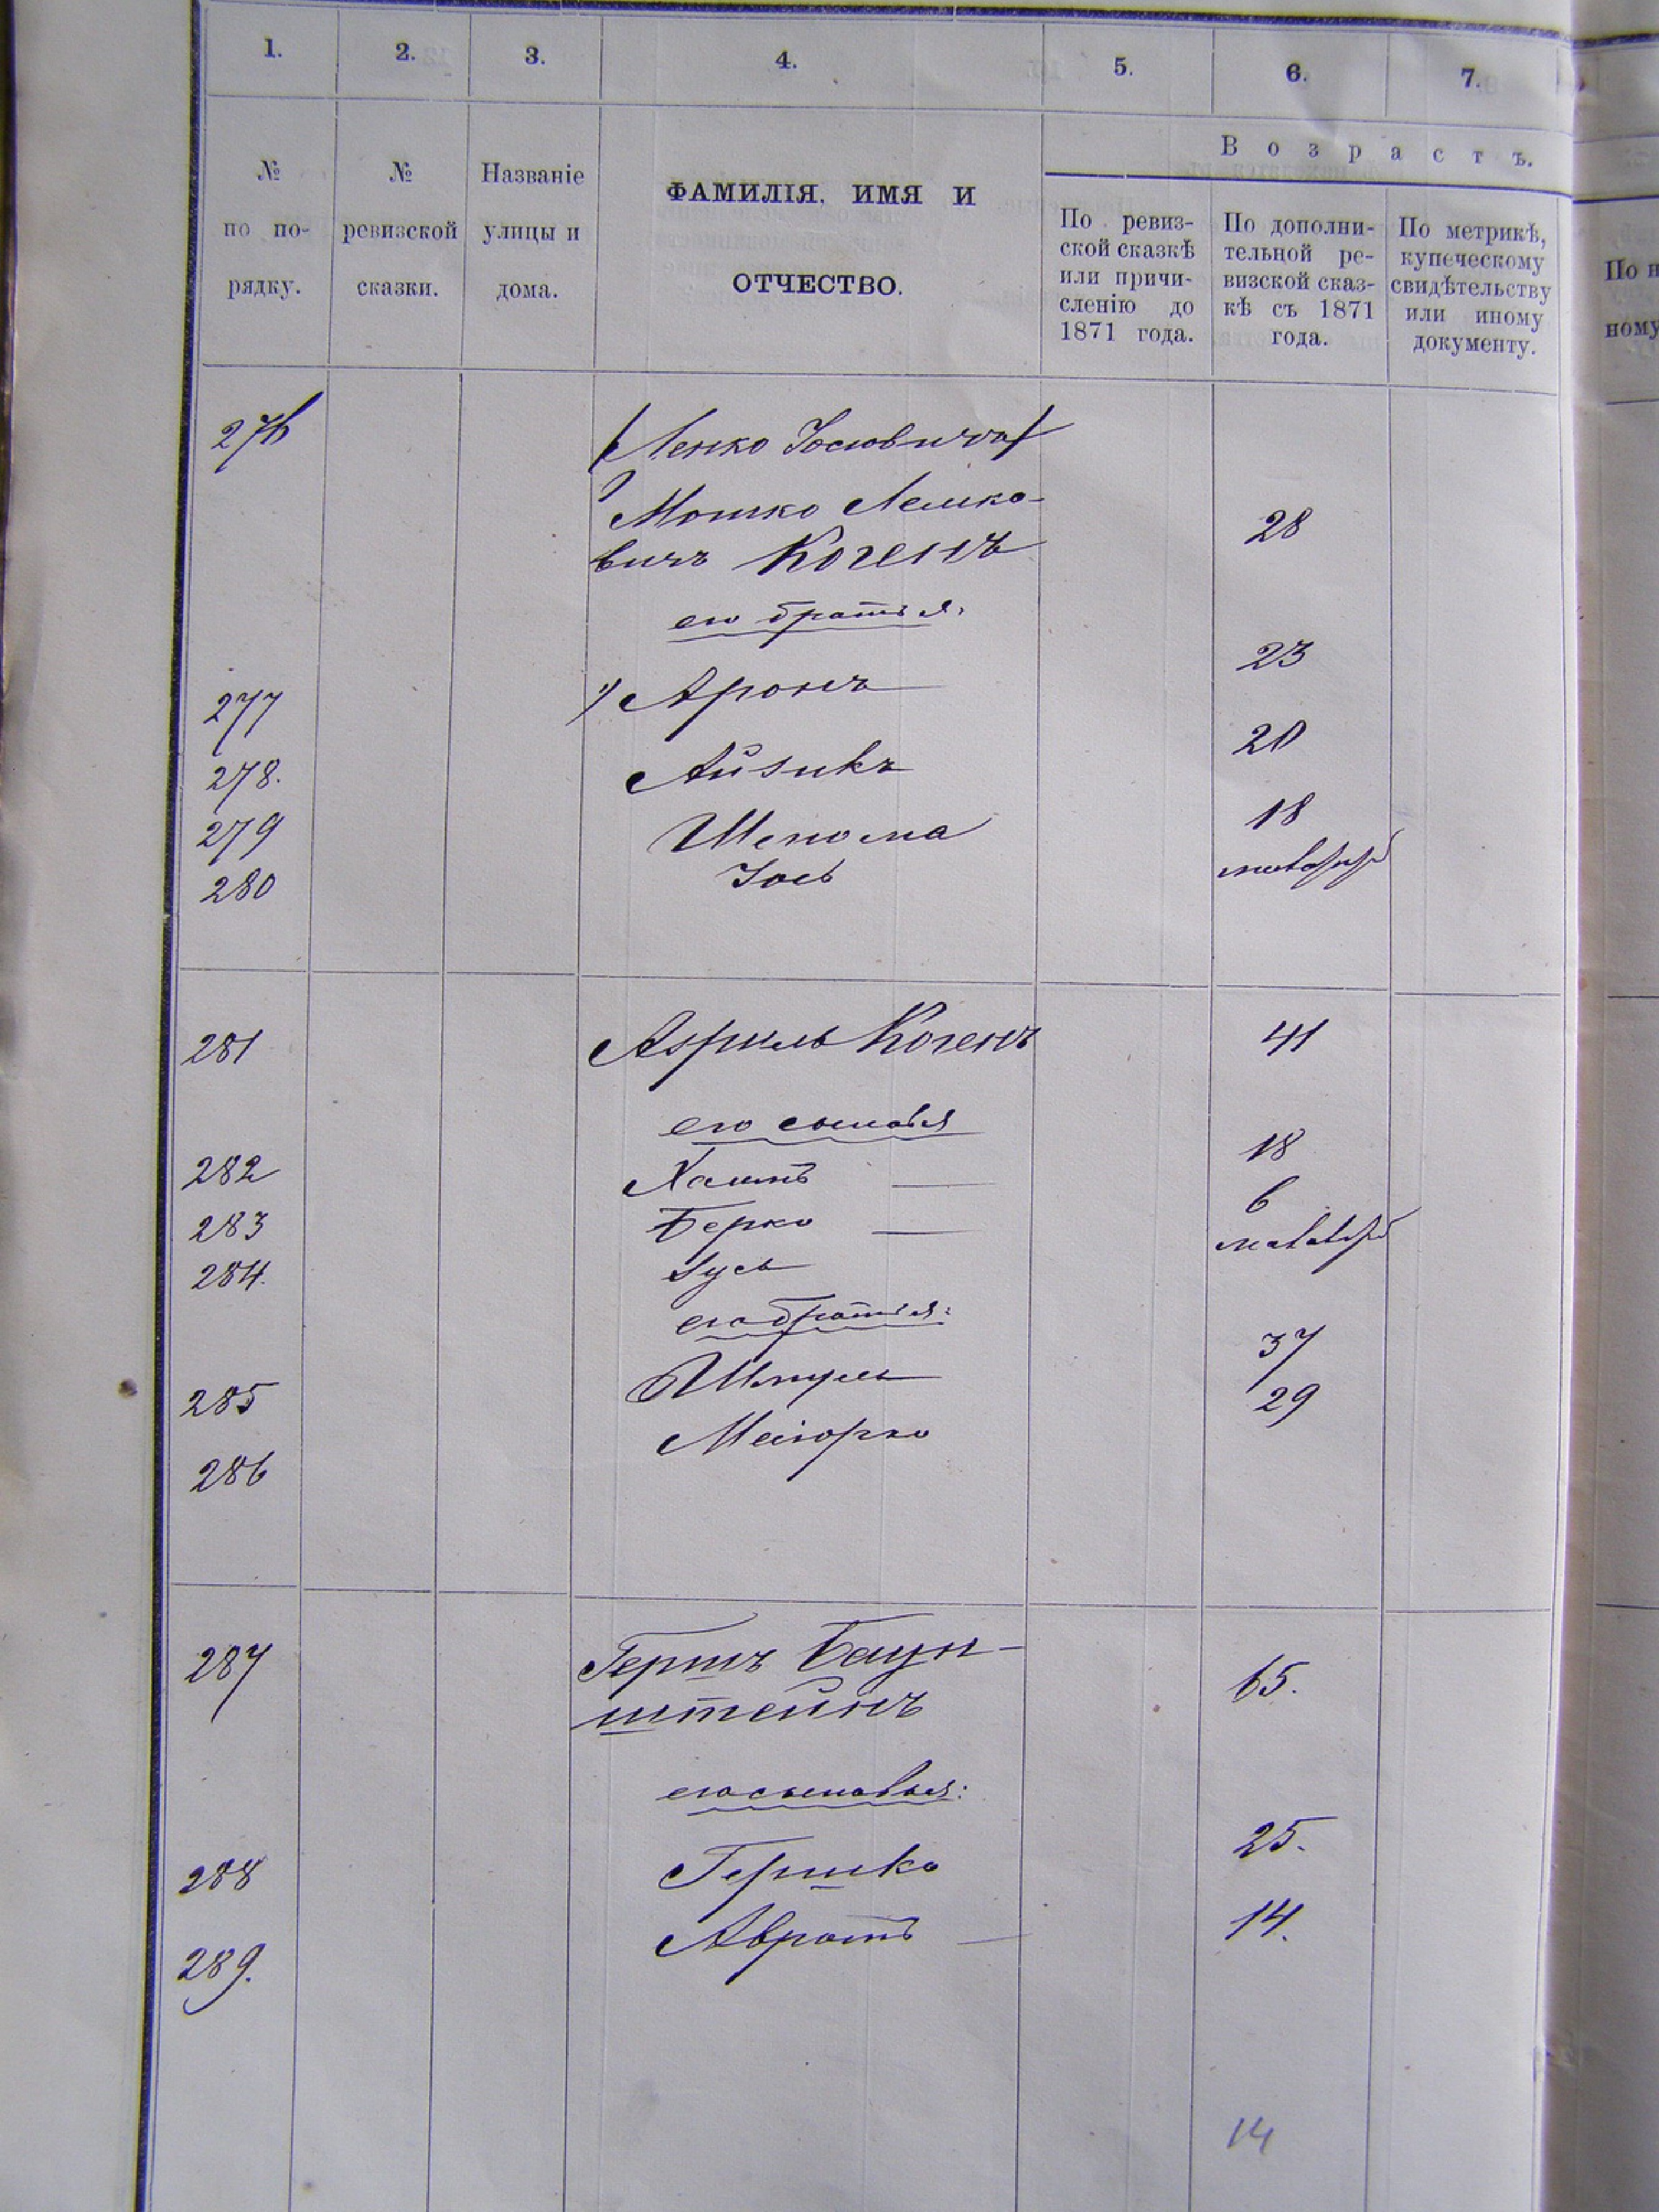 1. 2. 3. 4. 5. 6. 7.
№ по по-рядку.
№ ревизской сказки.
Названіе улицы и дома.
ФАМИЛІЯ, ИМЯ И
ОТЧЕСТВО.
Возрастъ.
По ревиз-
ской сказкѣ
или причи-
сленію до
1871 года.
По дополни-
тельной ре-
визской сказ-
кѣ съ 1871
года.
По метрикѣ,
купеческому
свидѣтельству
или иному
документу.
276
Мошко Лемко-
вичъ Когенъ 28
его братья:
277 Аронъ 23
278. Айзикъ 20
279 Шепсма 18
280 Іось
281 Азриль Когенъ 41
его сыновья
282 Хаимъ 18
283 Берко 6
284. Зусь
его братья:
285 Шмуль 37
286 Меіорко 29
287 Гершъ Баун-
штейнъ 65.
его сыновья:
288 Гершко 25.
289. Аврамъ 14.
14